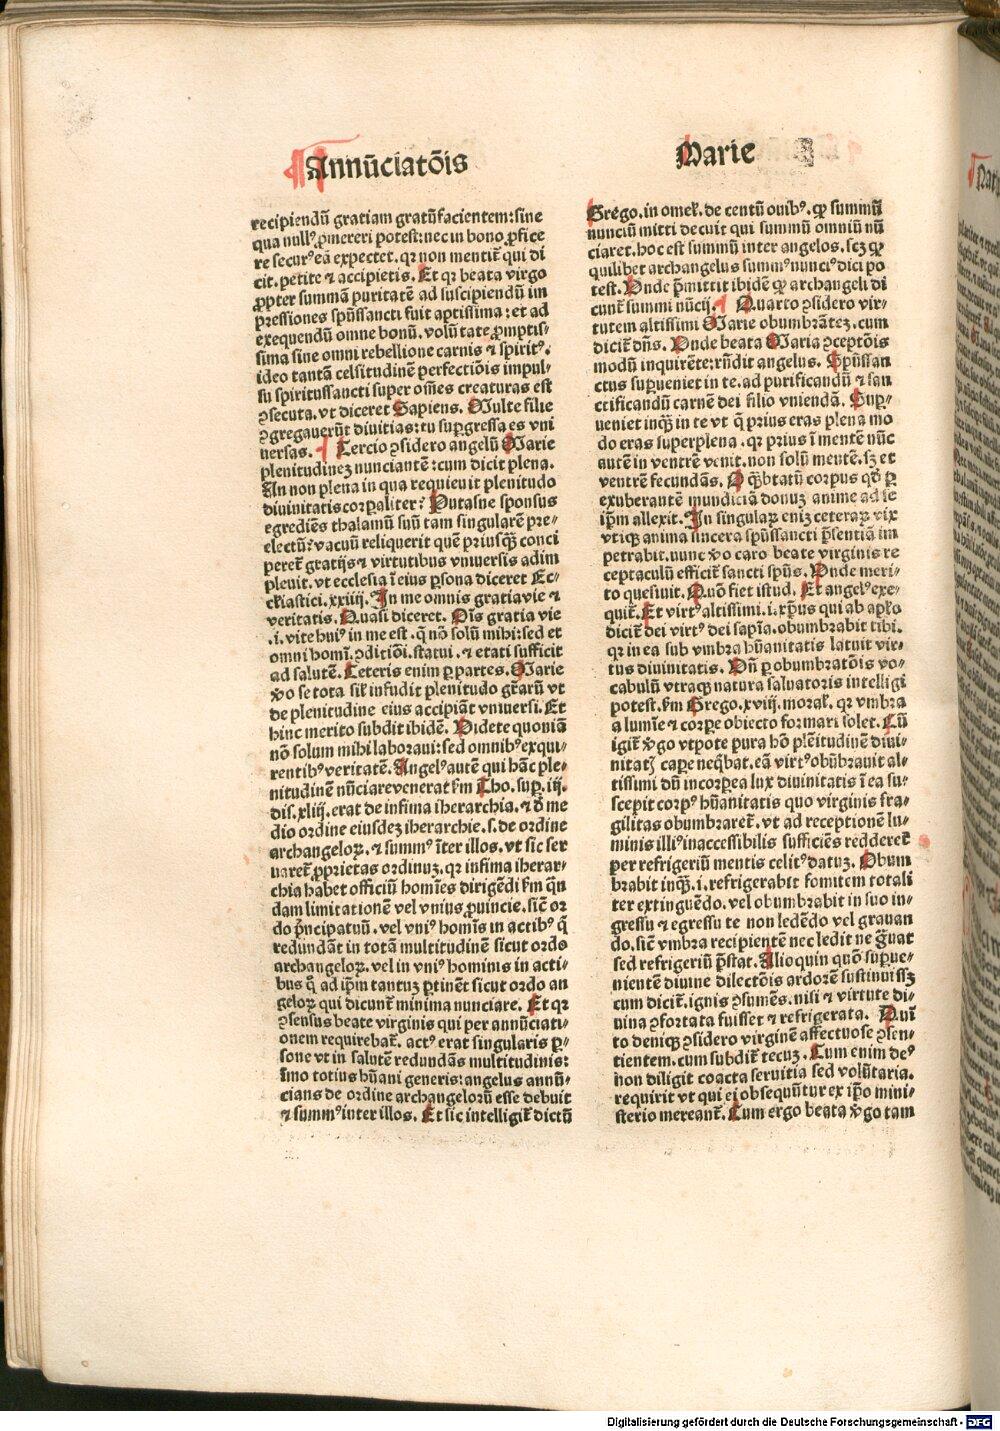 Annūciatōis
Marie
recipiendū gratiam gratūfacientem: sine
qua nullꝰ ꝓmereri potest: nec in bono ꝓfice
re securꝰ eā expectet. qꝛ non mentit̄ qui di
cit. petite ⁊ accipietis. Et qꝛ beata virgo
ꝓpter summā puritatē ad suscipiendū im
p̄ssiones spūssancti fuit aptissima: et ad
exequendū omne bonū. volūtate ꝓmptis⸗
sima sine omni rebellione carnis ⁊ spiritꝰ.
ideo tantā celsitudinē perfectiōis impul⸗
su spiritussancti super om̄es creaturas est
ꝯsecuta. vt diceret Sapiens. Multe filie
ꝯgregauerūt diuitias: tu suꝑgressa es vni
uersas. ¶ Tercio ꝯsidero angelū Marie
plenitudinez nunciantē: cum dicit plena.
An non plena in qua requieuit plenitudo
diuinitatis corꝑaliter? Putasne sponsus
egrediēs thalamū suū tam singularē pre⸗
electū: vacuū reliquerit quē priusq̄ꝫ conci
peret gratijs ⁊ virtutibus vniuersis adim
pleuit. vt ecclesia ī eius ꝑsona diceret Ec⸗
cl̄iastici. xxiiij. In me omnis gratia vie ⁊
veritatis. Quasi diceret. Ois gratia vie
.i. vite huiꝰ in me est. q̄ nō solū mihi: sed et
omni homī. ꝯditiōi. statui. ⁊ etati sufficit
ad salutē. Ceteris enim ꝑ partes. Marie
v̄o se tota sil̄ infudit plenitudo gr̄arū vt
de plenitudine eius accipiāt vniuersi. Et
hinc merito subdit ibidē. Videte quoniā
nō solum mihi laboraui: sed omnibꝰ exqui⸗
rentibꝰ veritatē. Angelꝰ autē qui hāc ple⸗
nitudinē nūciare venerat ẜm Tho. suꝑ. iij.
dis. xliij. erat de infima iherarchia. ⁊ d̄ me
dio ordine eiusdez iherarchie. s. de ordine
archangeloꝝ. ⁊ summꝰ īter illos. vt sic ser
uaret̄ ꝓprietas ordinuz. qꝛ infima iherar⸗
chia habet officiū homīes dirigēdi ẜm q̄n
dam limitationē vel vnius ꝓuincie. sic̄ or
do p̄ncipatuū. vel vniꝰ homīs in actibꝰ q̄
redundāt in totā multitudinē sicut ordo
archangeloꝝ. vel in vniꝰ hominis in acti⸗
bus q̄ ad ip̄m tantuz ꝑtinēt sicut ordo an
geloꝝ qui dicunt̄ minima nunciare. Et qꝛ
ꝯsensus beate virginis qui per annūciati⸗
onem requirebat̄. actꝰ erat singularis ꝑ⸗
sone vt in salutē redundās multitudinis:
īmo totius hūani generis: angelus annū⸗
cians de ordine archangelorū esse debuit
⁊ summꝰ inter illos. Et sic intelligit̄ dictū
Grego. in omel̄. de centū ouibꝰ. ꝙ summū
nunciū mitti decuit qui summū omniū nū
ciaret. hoc est summū inter angelos. scꝫ ꝙ
quilibet archangelus summꝰ nunciꝰ dici po
test. Vnde p̄mittit ibidē ꝙ archangeli di
cunt̄ summi nūcij. ¶ Quarto ꝯsidero vir⸗
tutem altissimi Marie obumbrātez. cum
dicit̄ dn̄s. Vnde beata Maria ꝯceptōis
modū inquirēte: rn̄dit angelus. Spūssan
ctus suꝑueniet in te. ad purificandū ⁊ san
ctificandū carnē dei filio vniendā. Suꝑ⸗
ueniet inqꝫ in te vt q̄ prius eras plena mo
do eras superplena. qꝛ prius ī mentē nūc
autē in ventrē venit. non solū mentē. sꝫ et
ventrē fecundās. O q̄btatū corpus qd̄ ꝑ
exuberantē mundiciā donuz anime ad se
ip̄m allexit. In singulaꝝ enīz ceteraꝝ vix
vtiqꝫ anima sincera spūssancti p̄sentiā im
petrabit. nunc v̄o caro beate virginis re
ceptaculū efficit̄ sancti spūs. Vnde meri⸗
to quesiuit. Quō fiet istud. Et angelꝰ exe⸗
quit̄. Et virtꝰ altissimi .i. xp̄us qui ab ap̄lo
dicit̄ dei virtꝰ dei sap̄ia. obumbrabit tibi.
qꝛ in ea sub vmbra hūanitatis latuit vir⸗
tus diuinitatis. Vn̄ ꝑ obumbratōis vo⸗
cabulū vtraqꝫ natura saluatoris intelligi
potest. ẜm Grego. xviij. moral̄. qꝛ vmbra
a lumīe ⁊ corꝑe obiecto formari solet. Cū
igit̄ v̄go vtpote pura hō plēitudinē diui⸗
nitatꝭ caꝑe neq̄bat. eā virtꝰ obūbrauit al⸗
tissimi dū incorꝑea lux diuinitatis ī ea su⸗
scepit corpꝰ hūanitatis quo virginis fra⸗
gilitas obumbraret̄. vt ad receptionē lu⸗
minis illiꝰ inaccessibilis sufficiēs redderet̄
per refrigeriū mentis celitꝰ datuz. Obum
brabit inqꝫ .i. refrigerabit fomitem totali
ter extinguēdo. vel obumbrabit in suo in⸗
gressu ⁊ egressu te non ledēdo vel grauan
do. sic̄ vmbra recipientē nec ledit ne g̊uat
sed refrigeriū p̄stat. Alioquin quō suꝑue⸗
nientē diuine dilectōis ardorē sustinuissꝫ
cum dicit̄. ignis ꝯsumēs. nisi ⁊ virtute di⸗
uina ꝯfortata fuisset ⁊ refrigerata. Quī
to deniqꝫ ꝯsidero virginē affectuose ꝯsen⸗
tientem. cum subdit̄ tecuz. Cum enim deꝰ
non diligit coacta seruitia sed volūtaria.
requirit vt qui ei obsequūtur ex ip̄o mini⸗
sterio mereant̄. Cum ergo beata v̄go tam
Digitalisierung gefördert durch die Deutsche Forschungsgemeinschaft - DFG